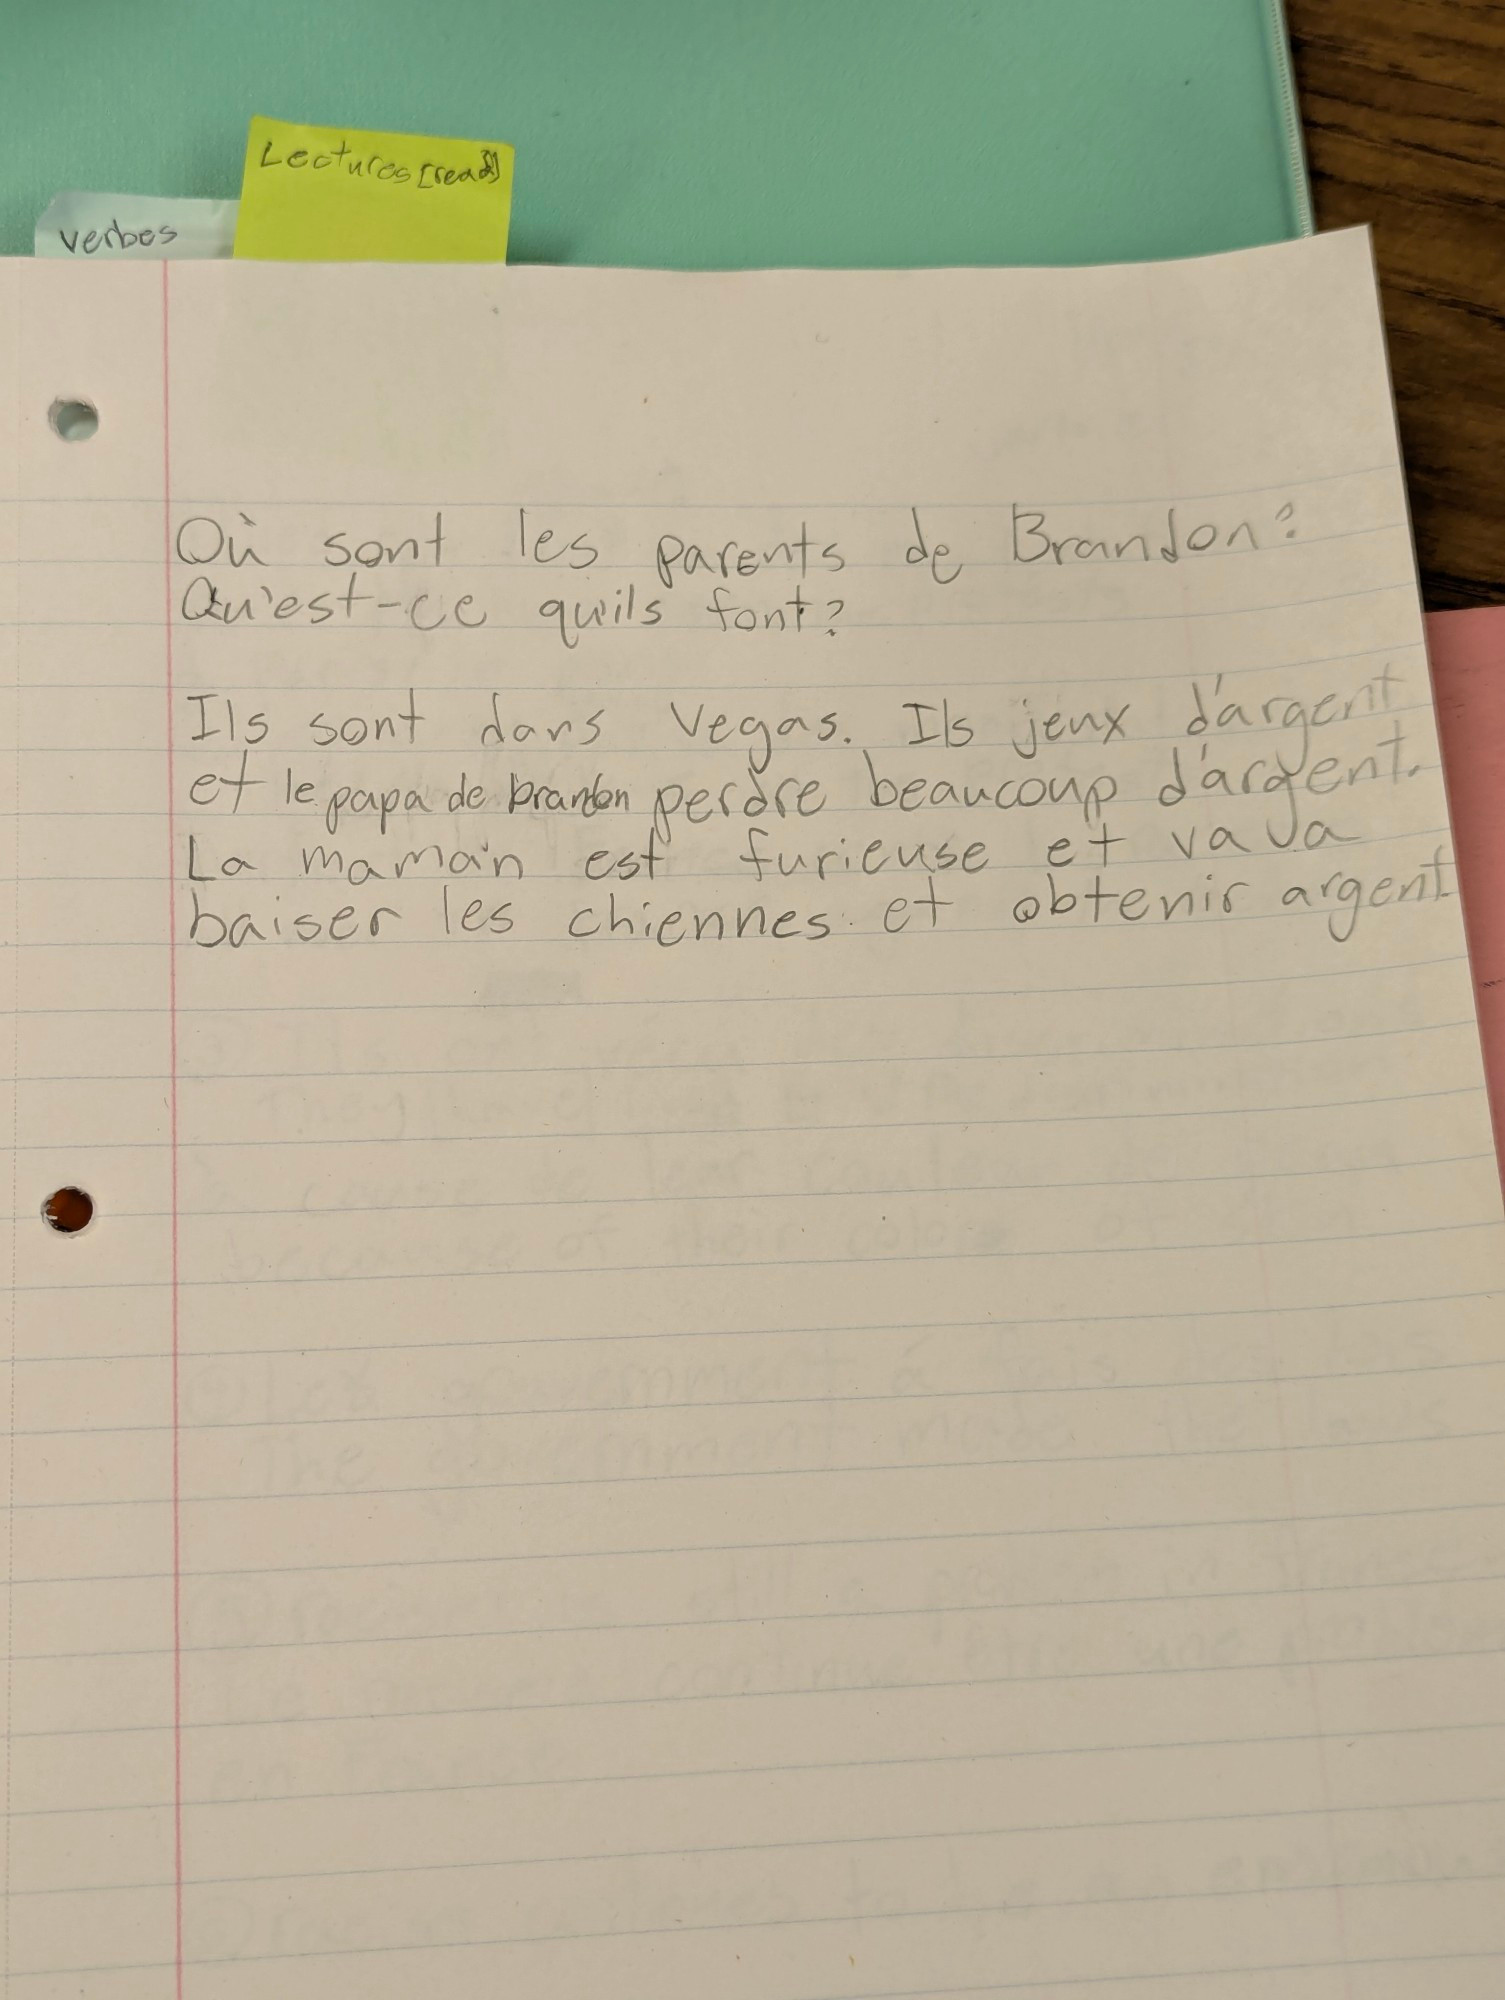 Lectures [read]
verbes
Où sont les parents de Brandon?
Qu'est-ce qu'ils font?
Ils sont dans Vegas. Ils jeux d'argent
et le papa de brandon perdre beaucoup d'argent.
La maman est furieuse et va va
baiser les chiennes et obtenir argent